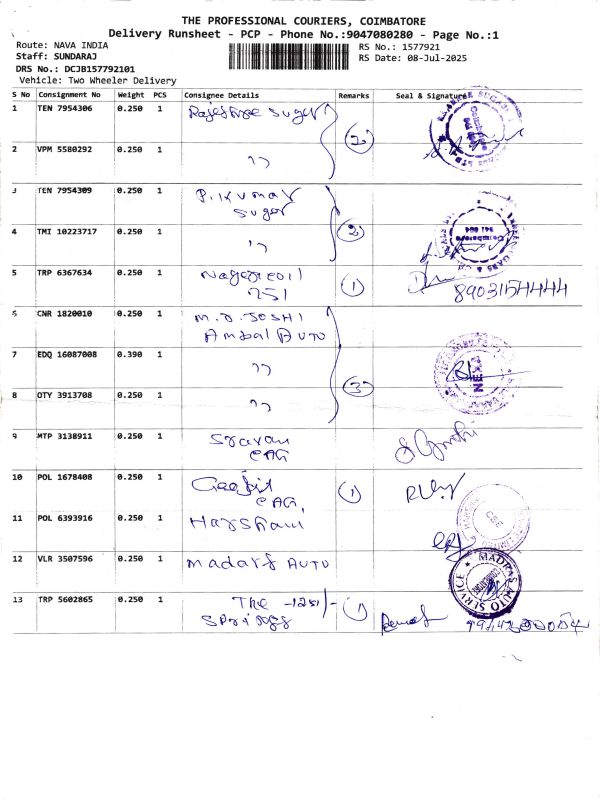 THE PROFESSIONAL COURIERS, COIMBATORE
Delivery Runsheet - PCP - Phone No.:9047080280 - Page No.:1
Route: NAVA INDIA
RS No.: 1577921
Staff: SUNDARAJ
RS Date: 08-Jul-2025
DRS No.: DCJB157792101
Vehicle: Two Wheeler Delivery
S No Consignment No Weight PCS Consignee Details Remarks Seal & Signature
1 TEN 7954306 0.250 1 sugar
2 VPM 5580292 0.250 1 ,, 2
3 TEN 7954309 0.250 1 P. Kumar
sugar
4 TMI 10223717 0.250 1 ,, 2
Coimbatore
5 TRP 6367634 0.250 1 Nagercoil
251 1
6 CNR 1820010 0.250 1 M.D. JOSHI
Ambal AUTO
7 EDQ 16087008 0.390 1 ,,
NEXA
8 OTY 3913708 0.250 1 ,, 3
9 MTP 3138911 0.250 1 Sravan
CAG
10 POL 1678408 0.250 1 CAG, 1
11 POL 6393916 0.250 1
12 VLR 3507596 0.250 1 AUTO
MADRAS AUTO SERVICE
13 TRP 5602865 0.250 1 The -1251/- 1
Springs